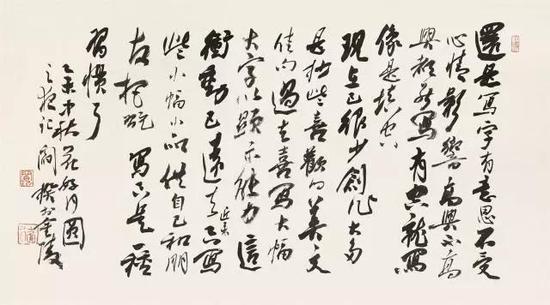 還是寫字有意思不受
心情影響高興不高
興都能寫有空就寫
像是填空
現在已很少創作大多
是抄些喜歡的美文
佳句過去喜寫大幅
大字以顯示能力這
衝動已遠去近來只寫
些小幅小品供自己和朋
友把玩寫字是種
習慣了
乙未中秋花好月圓
之夜記於金陵